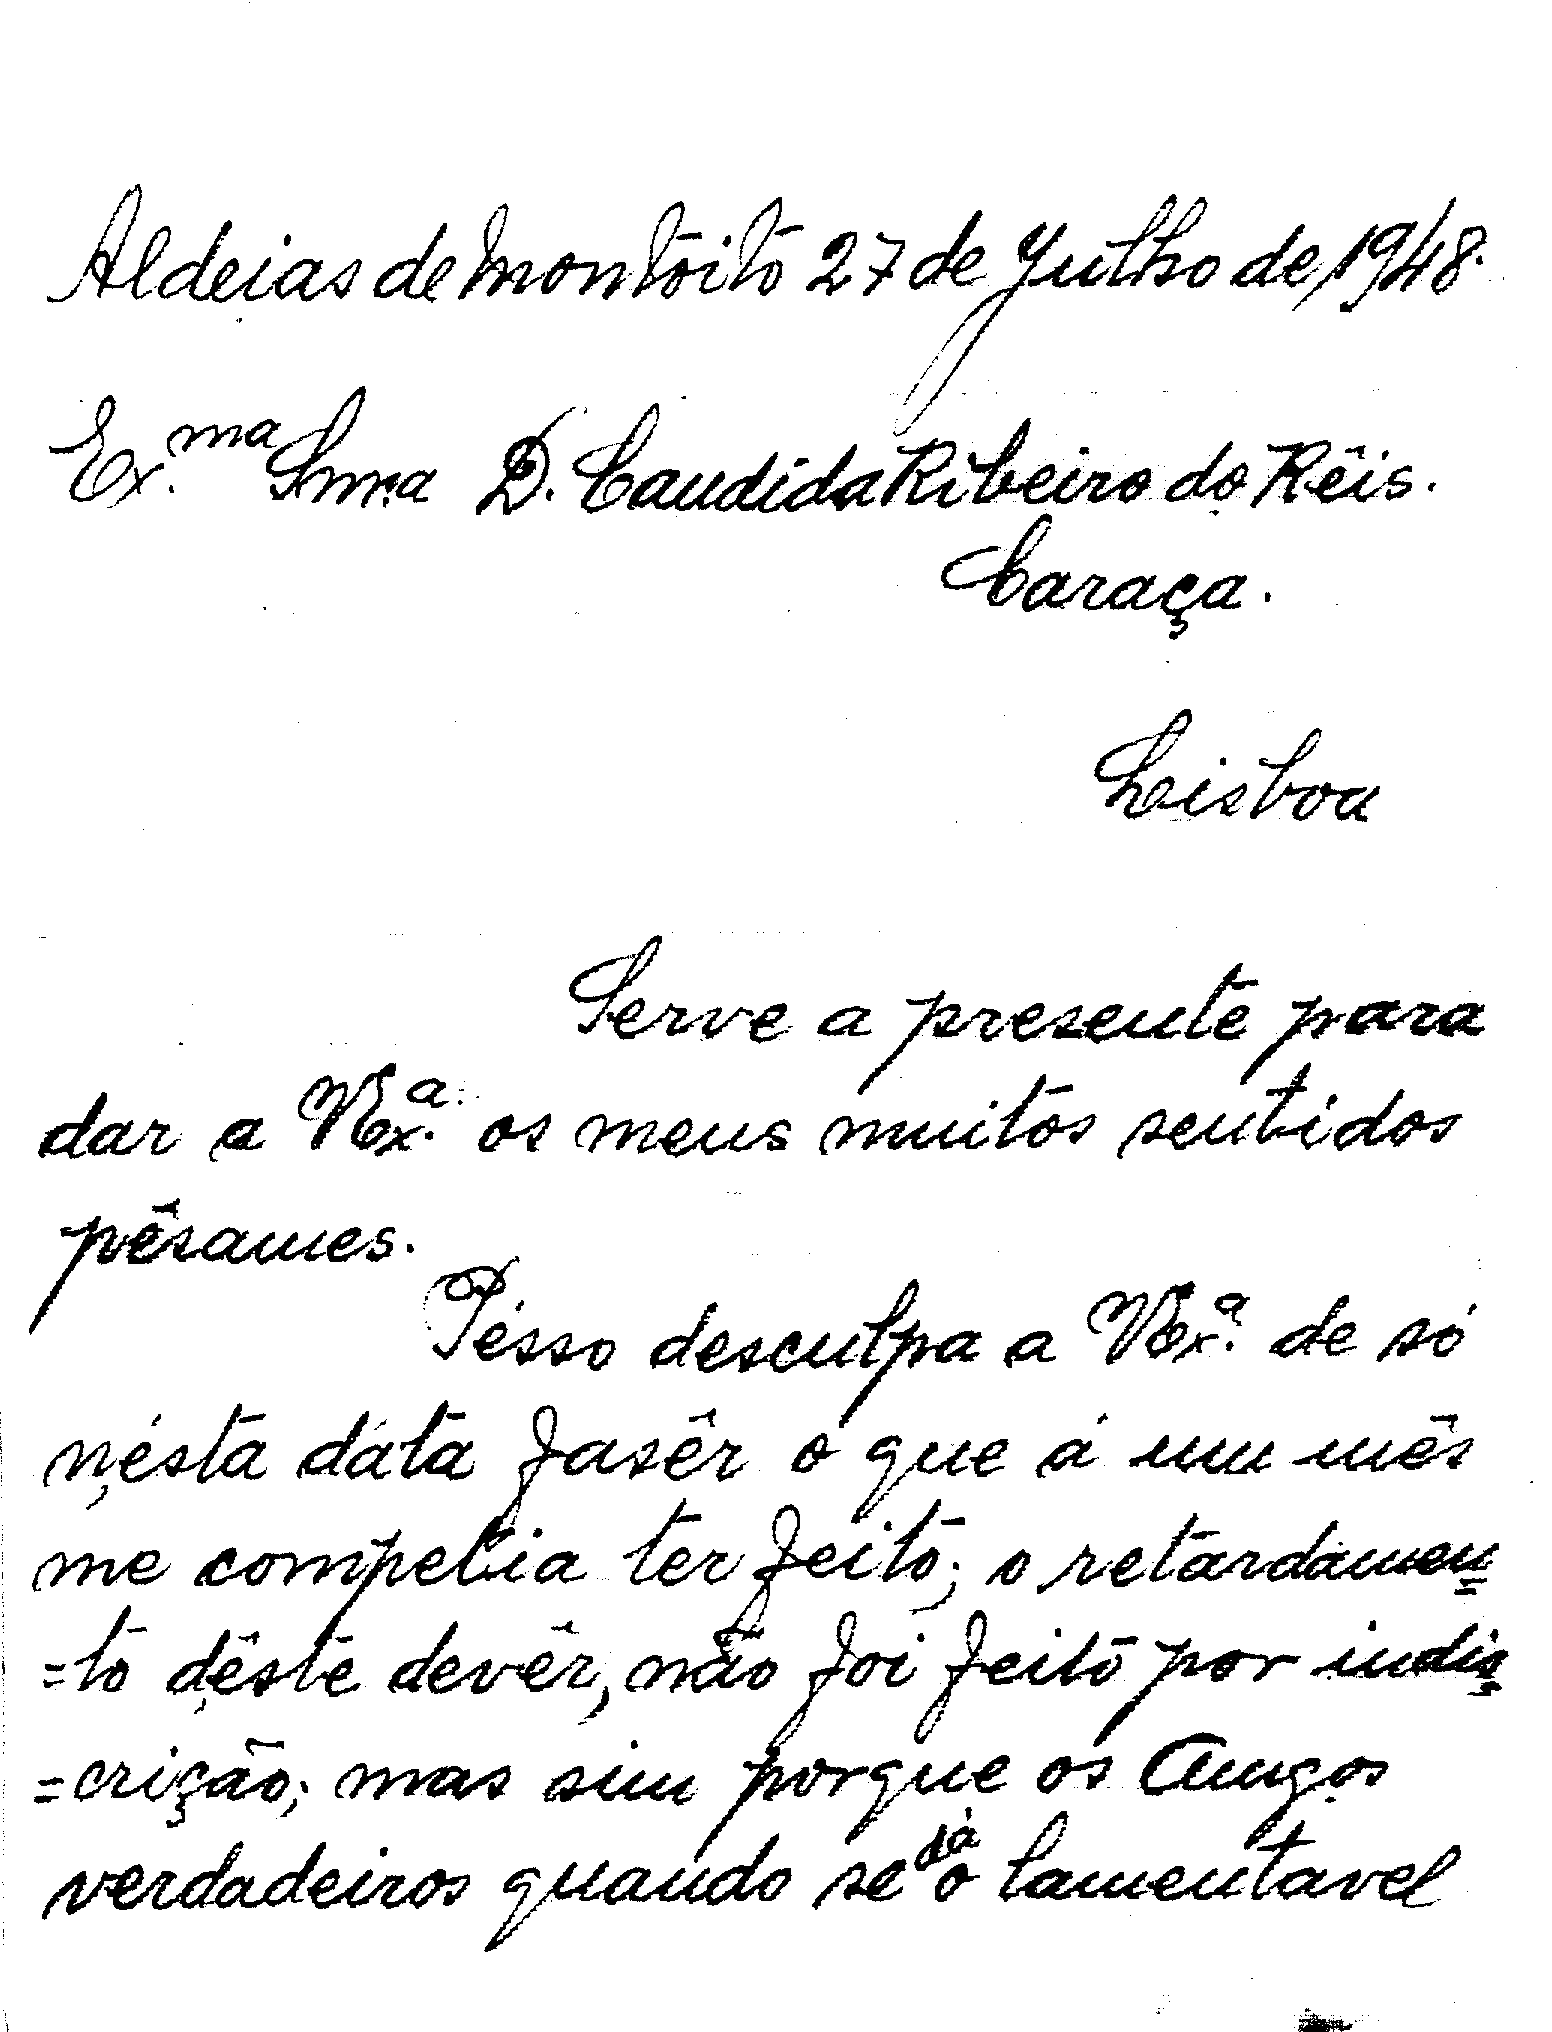 Aldeias de Montoito 27 de Julho de 1948.
Ex.ma Snra D. Candida Ribeiro do Rêis.
Caraça.
Lisboa
Serve a presente para
dar a VEx.ª os meus muitos sentidos
pêsames.
Pésso desculpa a VEx.ª de só
nésta dáta fasêr o que á um mês
me competia ter feito; o retardamen=
=to dêste devêr, não foi feito por indis=
=crição; mas sim porque os Amigos
verdadeiros quando se dá o lamentavel